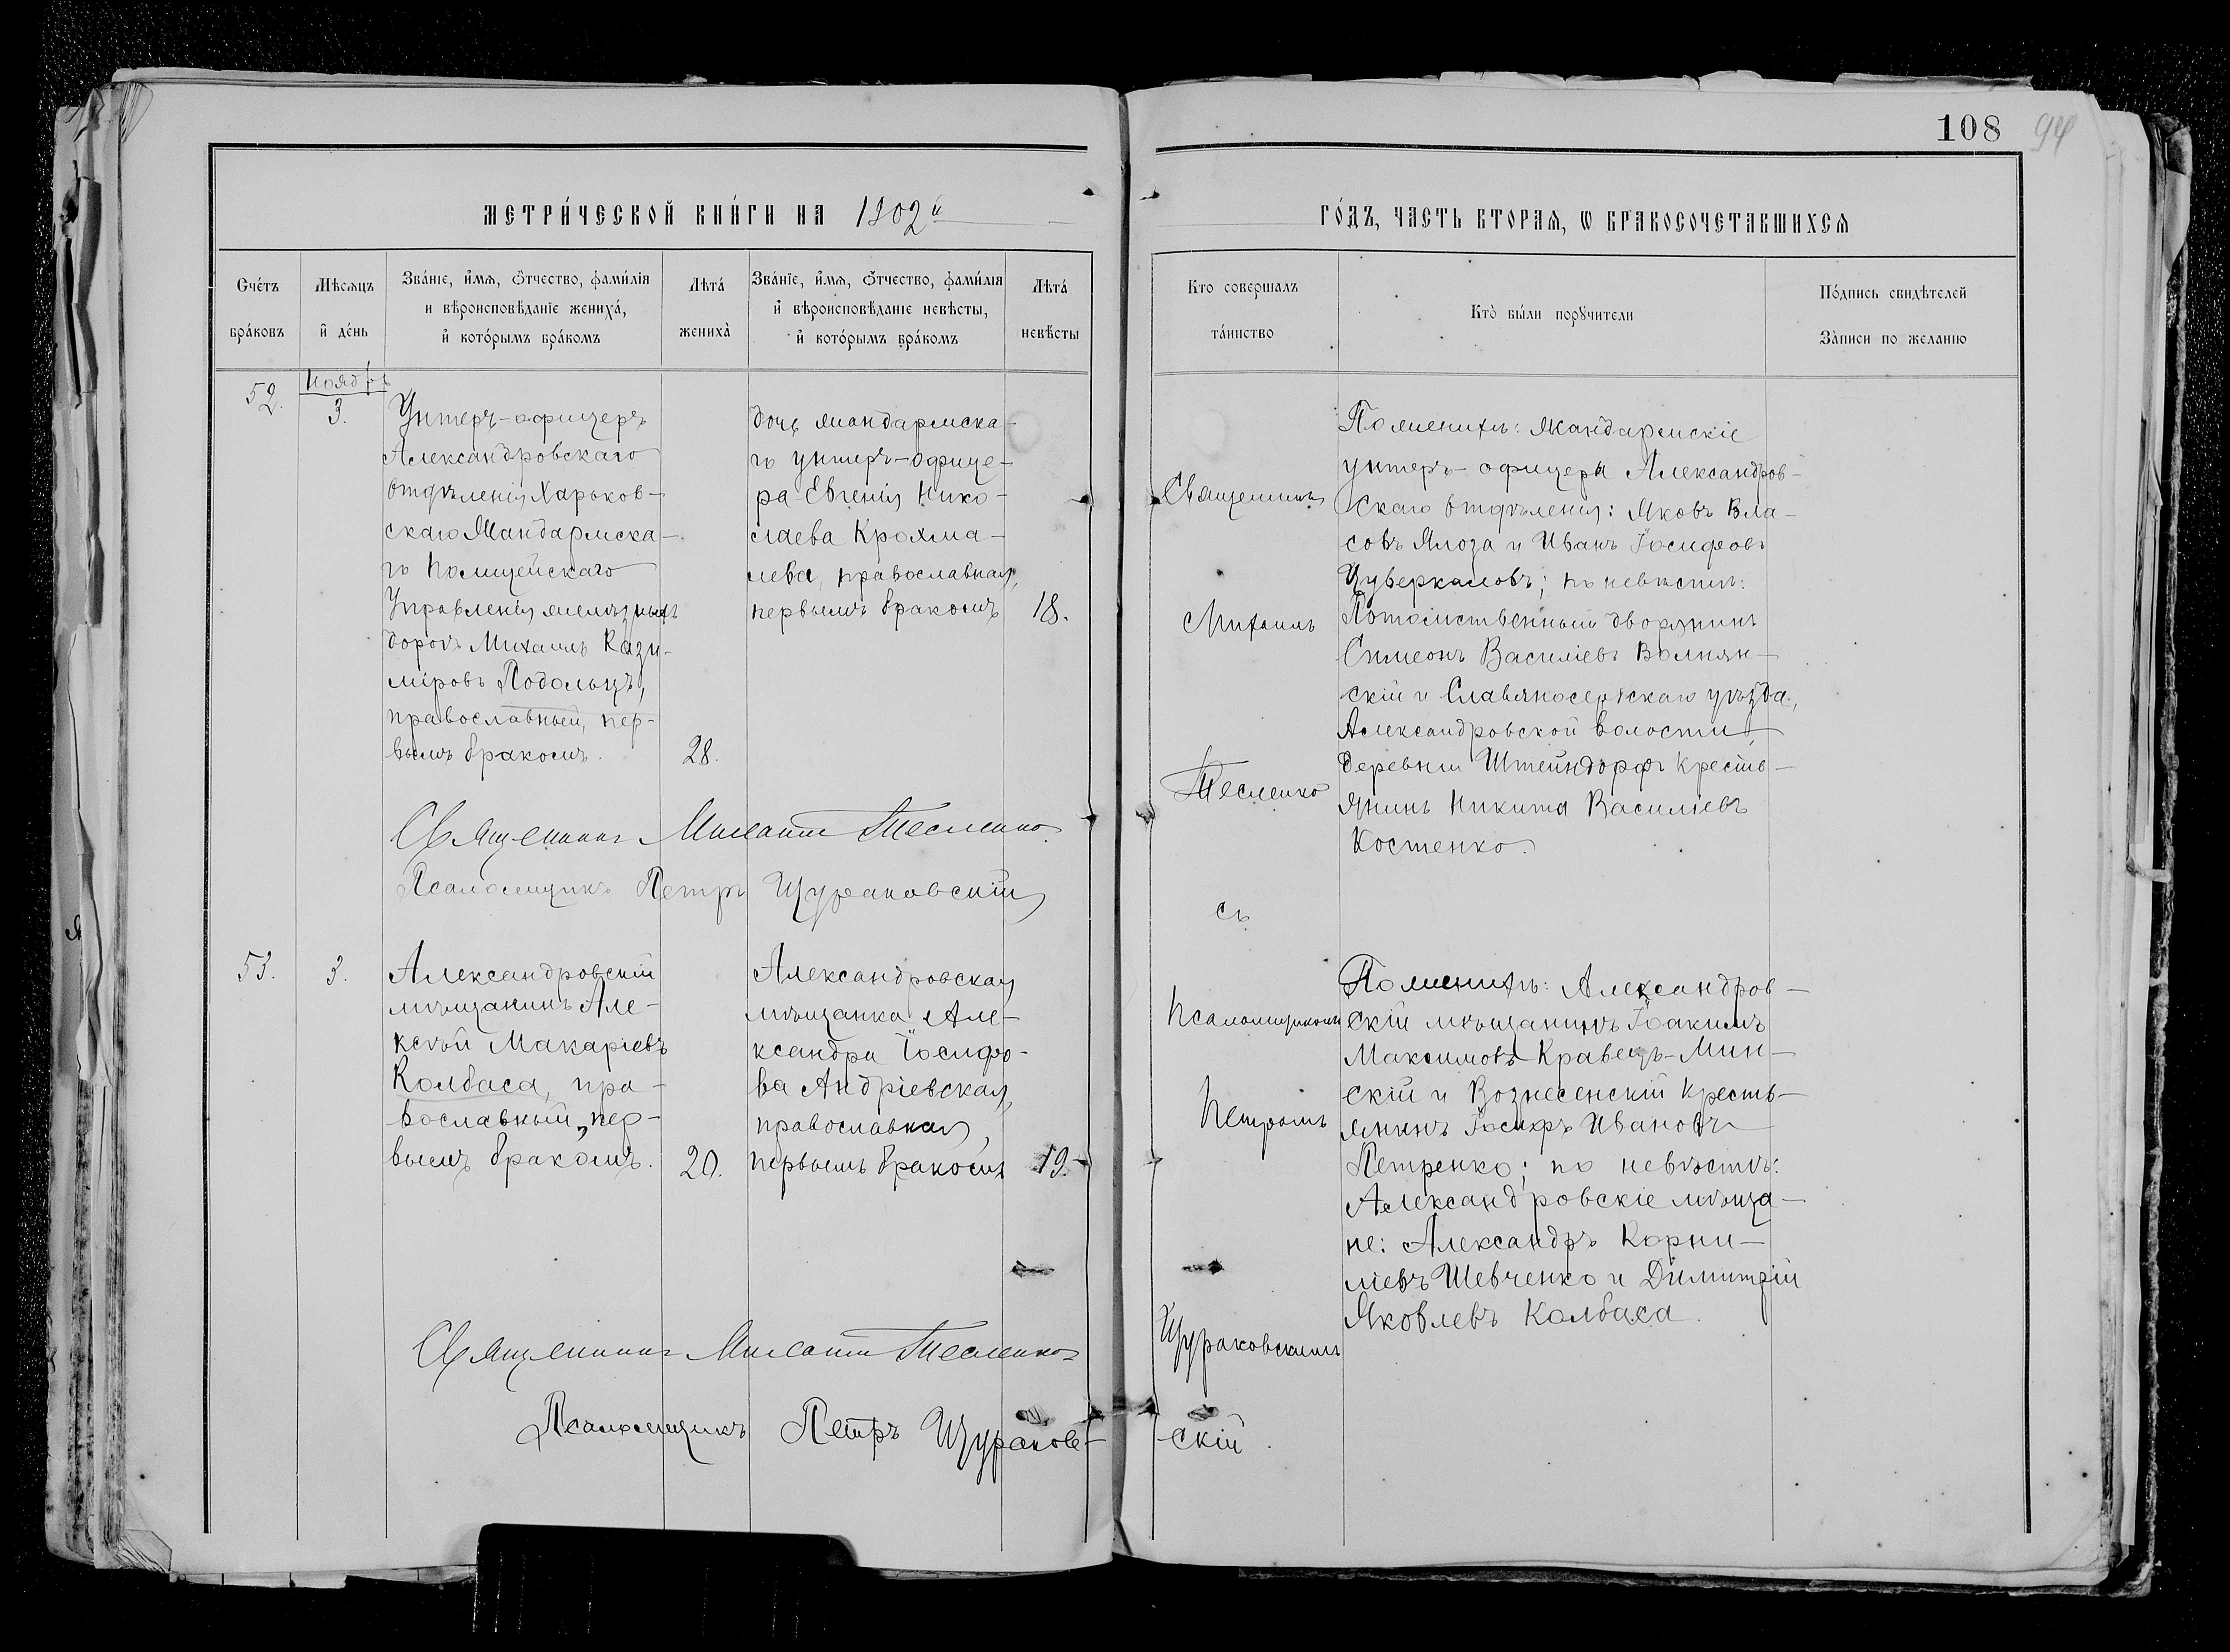 108 94
МЕТРИ́ЧЕСКОЙ КНИ́ГИ НА 1902й
ГО́ДЪ, ЧАСТЬ ВТОРАѦ, Ѡ БРАКОСОЧЕТАВШИХСѦ
Сче́тъ бра́ковъ
Мѣсяцъ и де́нь
Зва́нїе, и́мѧ, о́тчество, фами́лїя и вѣроисповѣ́данїе жениха́, и кото́рымъ бра́комъ
Лѣта́ жениха̀
Зва́нїе, и́мѧ, о́тчество, фами́лїя и вѣроисповѣ́данїе невѣсты, и кото́рымъ бра́комъ
Лѣта́ невѣ́сты
Кто совершалъ та́инство
Кто̀ бы́ли порꙋчители
По́дпись свидѣ́телей За́писи по желанію
52.
Ноябрь
3.
Унтеръ-офицеръ
Александровскаго
Отдѣленія Харьков-
скаго Жандармска-
го Полицейскаго
Управленія желѣзныхъ
дорогъ Михаилъ Кази-
міровъ Подолецъ,
православный, пер-
вымъ бракомъ.
28.
дочь жандармска-
го унтеръ-офице-
ра Евгенія Нико-
лаева Крохма-
лева, православная,
первымъ бракомъ
18.
Священникъ
Михаилъ
Тесленко
съ
Псаломщикомъ
Петромъ
Щураковскимъ
По женихѣ: Жандармскіе
унтеръ-офицеры Александров-
скаго Отдѣленія: Яковъ Вла-
совъ Ялоза и Иванъ Іосифовъ
Цуверкаловъ; по невѣстѣ:
Потомственный дворянинъ
Симеонъ Василіевъ Волнян-
скій и Славяносербскаго уѣзда,
Александровской волости,
деревни Штейндорфъ крестья-
янинъ Никита Василіевъ
Костенко.
Священникъ Михаилъ Тесленко
Псаломщикъ Петръ Щураковскій
53.
3.
Александровскій
мѣщанинъ Але-
ксѣй Макаріевъ
Колбаса, пра-
вославный, пер-
вымъ бракомъ.
20.
Александровская
мѣщанка Але-
ксандра Іосифо-
ва Андріевская,
православная,
первымъ бракомъ
19.
По женихѣ: Александров-
скій мѣщанинъ Іоакимъ
Максимовъ Кравецъ-Мин-
скій и Вознесенскій кресть-
янинъ Іосифъ Ивановъ
Петренко; по невѣстѣ:
Александровскіе мѣща-
не: Александръ Корни-
ліевъ Шевченко и Димитрій
Яковлевъ Колбаса.
Священникъ Михаилъ Тесленко
Псаломщикъ Петръ Щураков-
-скій.